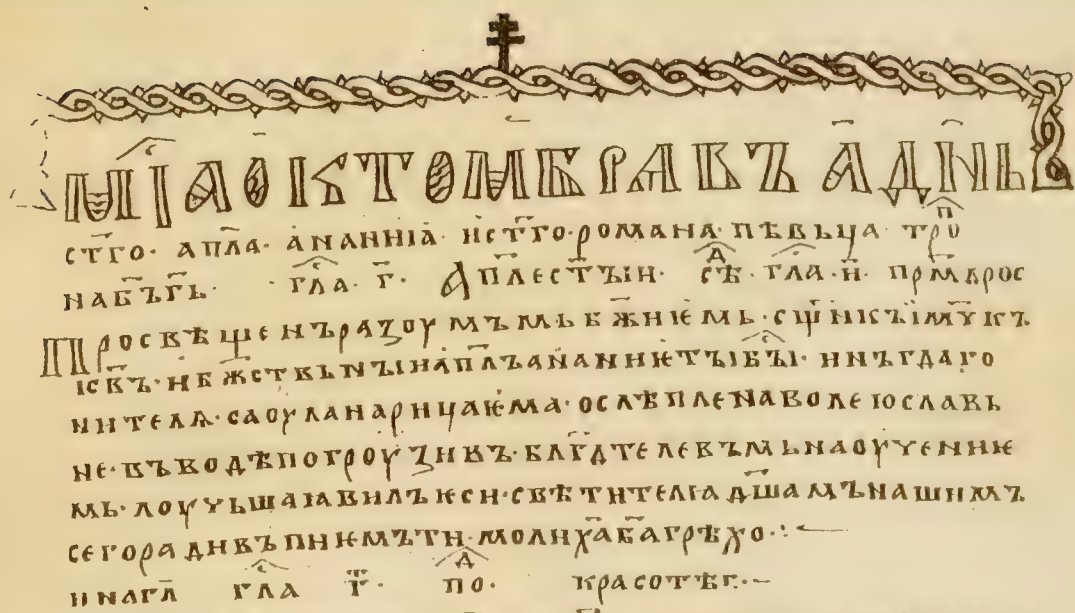 мⷭ҇ц҇а октомбра въ а҃ дн҃ь
ст҃го· ап҃ла· ананниꙗ· ист҃го· романа· пѣвьца· троⷫ҇
набъг҃ь· глⷭ҇а· г҃· ап҃лест҃ъін· сѣⷣ· глⷭ҇а· и҃· прм҃дрос
просвѣщенъразоумъмьбж҃ниѥмь· сщ҃нкъімч҃къ
ісв҃ъ· нбж҃ствьнъінап҃лъананниѥтъібъіⷭ҇· ннъгдаго
нителѧ· саоуланарицаѥма· ослѣпленаволеюславь
не· въводѣпогроузнвъ· благⷣтелевъмьнаоучениѥ
мь· лоучьшаꙗвилъѥси· свѣтителꙗдш҃амънашимъ
сегорадивъпиѥмъти· молих҃аб҃агрѣхо·
инагл҃ глⷭ҇а г҃· поⷣ· красотѣг·